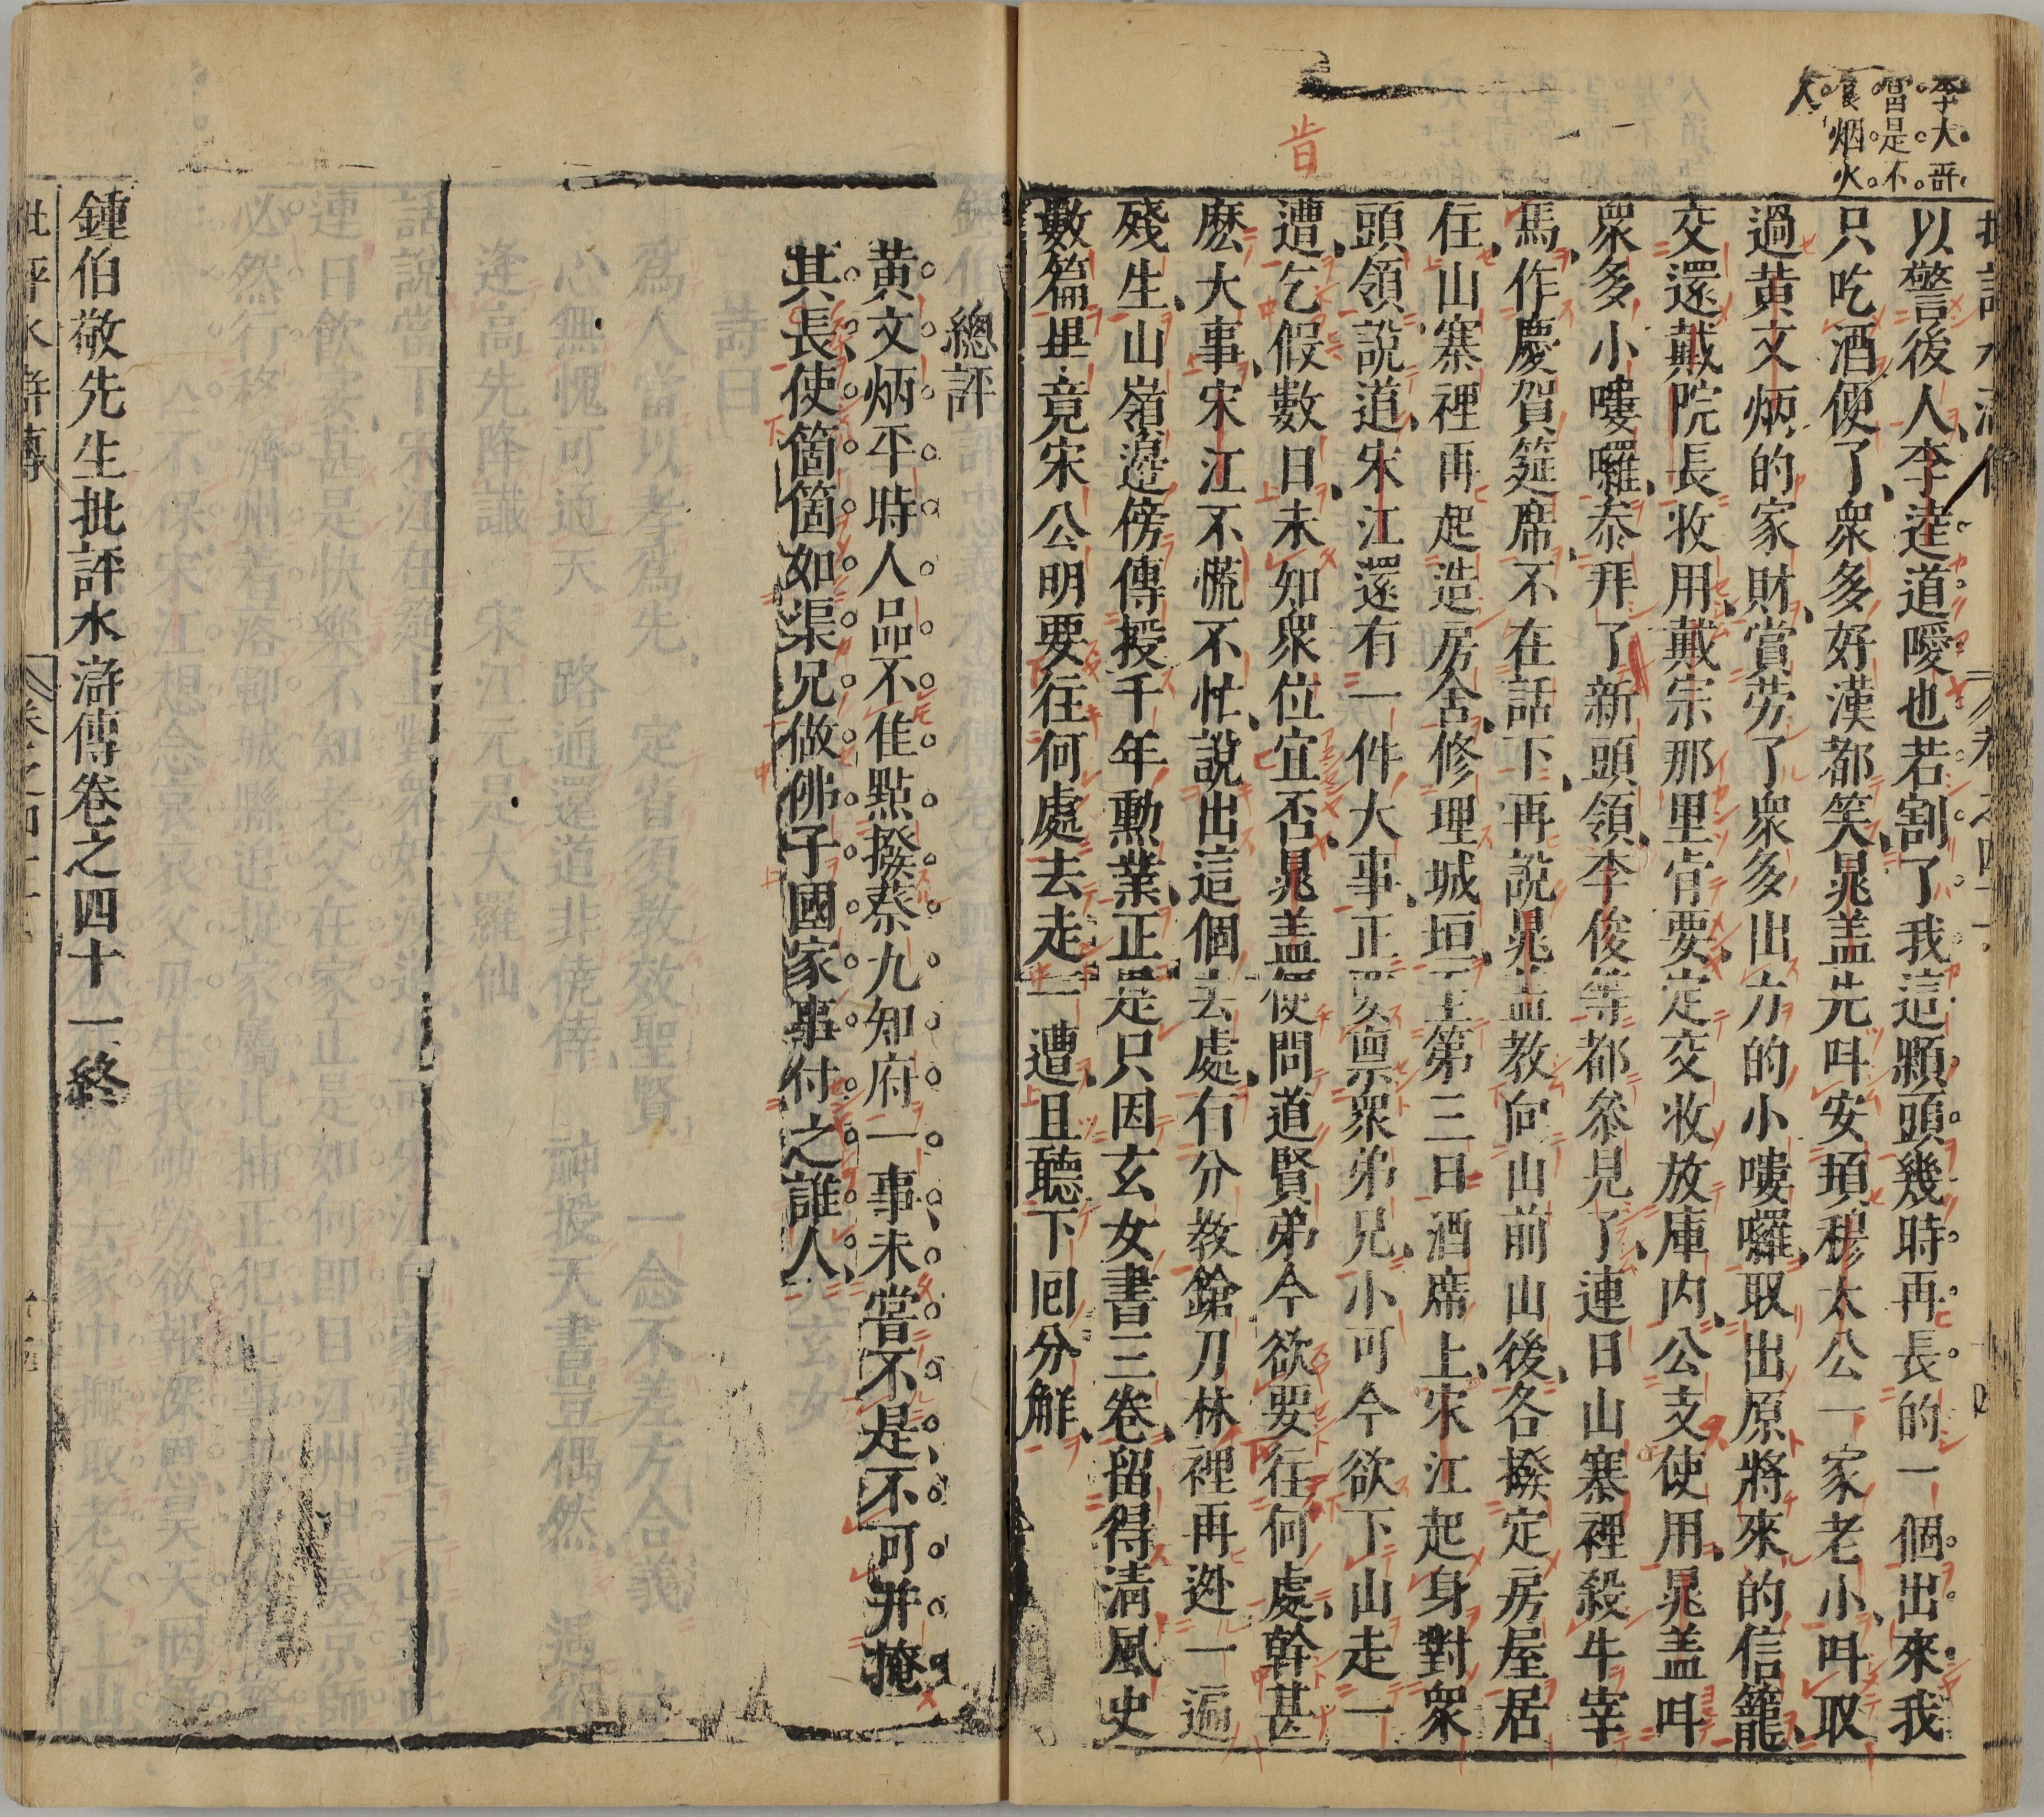 李大哥
當是不
食烟火
人
以警後人李逵道噯也若割了我這顆頭幾時再長的一個出來我
只吃酒便了衆多好漢都笑晁盖先呌安頓穆太公一家老小呌取
過黄文炳的家財賞劳了衆多出力的小嘍囉取出原將來的信籠
交還戴院長收用戴宗那里肯要定交收放庫内公支使用晁盖呌
衆多小嘍囉叅拜了新頭領李俊等都叅見了連日山寨裡殺牛宰
馬作慶賀筵席不在話下再說晁盖教向山前山後各撥定房屋居
住山寨裡再起造房舍修理城垣至第三日酒席上宋江起身對衆
頭領說道宋江還有一件大事正要禀衆弟兄小可今欲下山走一
遭乞假數日未知衆位宜否晁盖便問道賢弟今欲要往何處幹甚
麽大事宋江不慌不忙說出這個去處有分教鎗刀林裡再逃一遍
殘生山嶺邉傍傳授千年勳業正是只因玄女書三卷留得清風史
數篇畢竟宋公明要往何處去走一遭且聽下囘分解
肯
總評
黄文炳平時人品不佳點撥蔡九知府一事未嘗不是不可并掩
其長使箇箇如渠兄做佛子國家事付之誰人
鍾伯敬先生批評水滸傳卷之四十一終
批評水滸傳